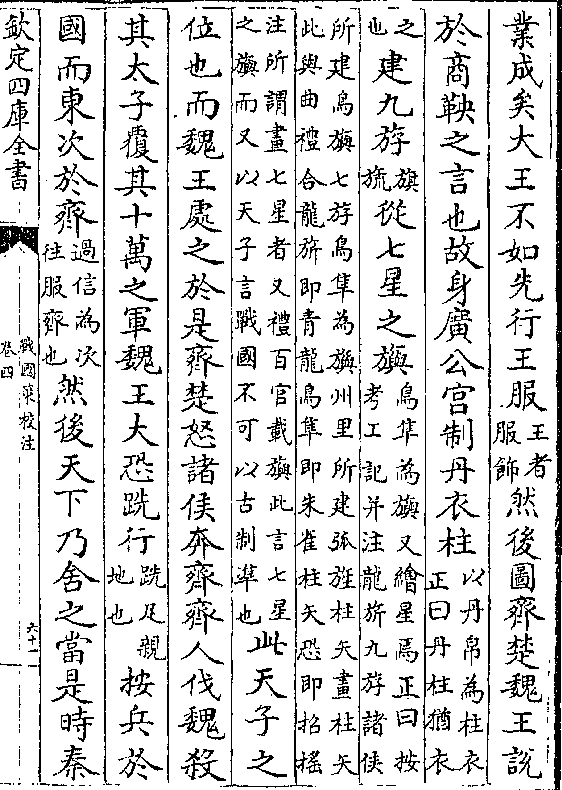 業成矣大王不如先行王服王者服飾然後圖齊楚魏王說
於商鞅之言也故身廣公宫制丹衣柱以丹帛為柱衣正曰丹柱猶衣
之也建九斿旗旒從七星之旟鳥隼為旟又繪星焉正曰按考工記并注龍旂九斿諸侯
所建鳥旟七斿鳥隼為旟州里所建弧旌柱矢畫柱矢此與曲禮合龍旂即青龍鳥隼即朱雀柱矢恐即招搖
注所謂畫七星者又禮百官載旟此言七星之旟而又以天子言戰國不可以古制準也此天子之
位也而魏王處之於是齊楚怒諸侯奔齊齊人伐魏殺
其太子覆其十萬之軍魏王大恐跣行跣足親地也按兵於
國而東次於齊過信為次往服齊也然後天下乃舍之當是時秦
欽定四庫全書
戰國策校注
卷四
六十一